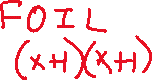 FOIL
(x+1)(x+1)